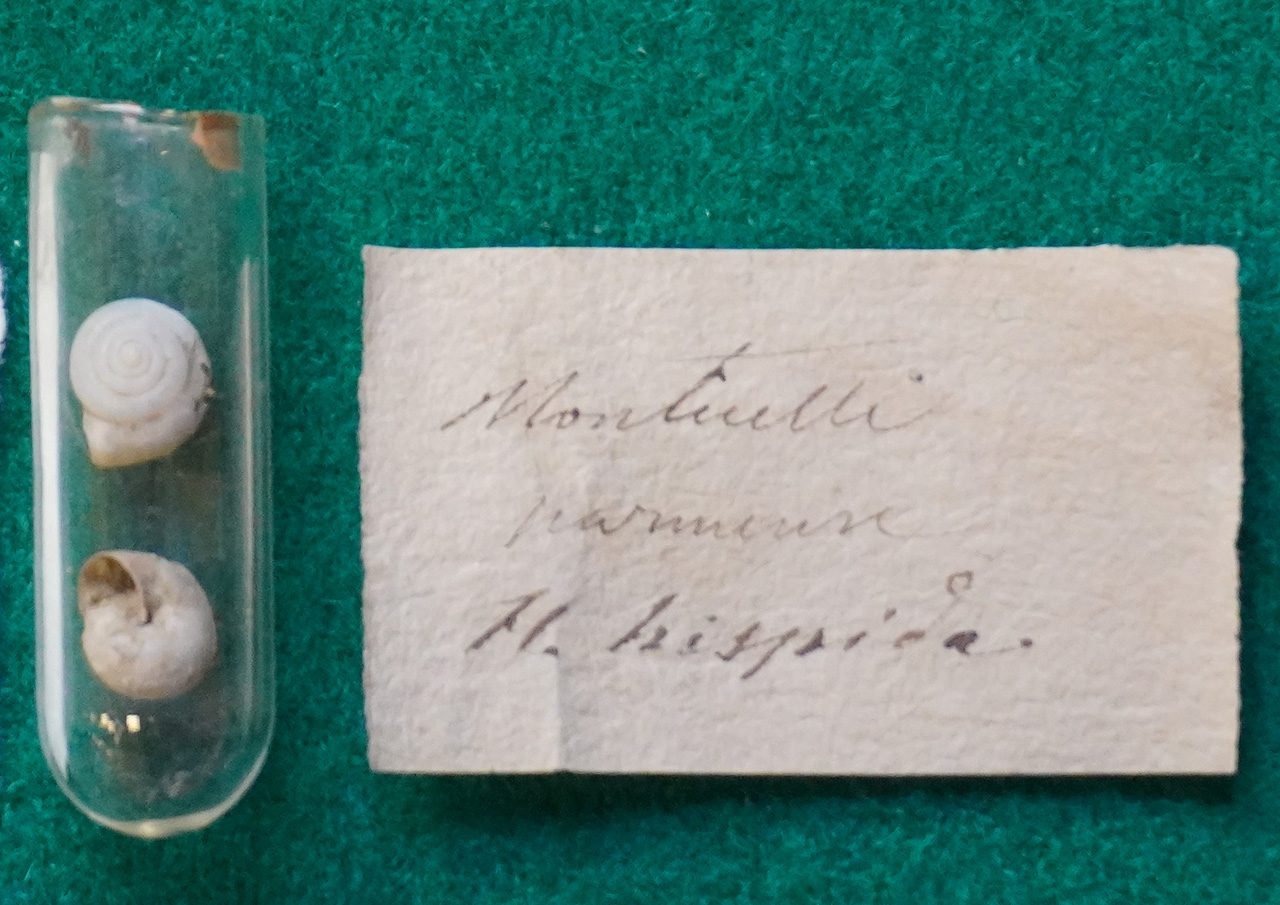 Monticelli
parmense
H. hispida.